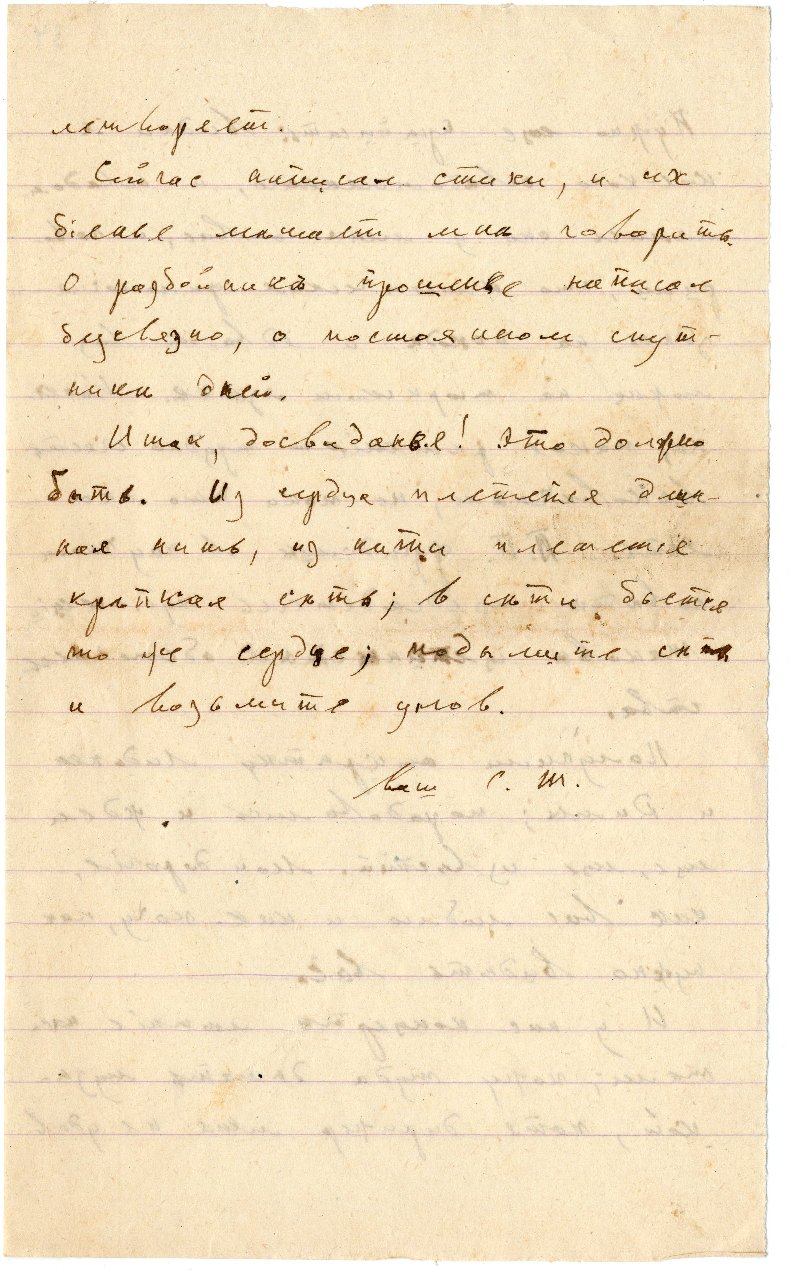 летворяет.
Сейчас написал стихи, и их
біенье мѣшает мнѣ говорить.
О разбойникѣ прошенье написал
безсвязно, о постоянном спут-
никѣ дней.
Итак, досвиданья! Это должно
быть. Из сердца плетется длин-
ная нить, из нити плетется
крѣпкая сѣть; в сѣти бьется
то же сердце; подымите сѣть
и возьмите улов.
Ваш С. Т.